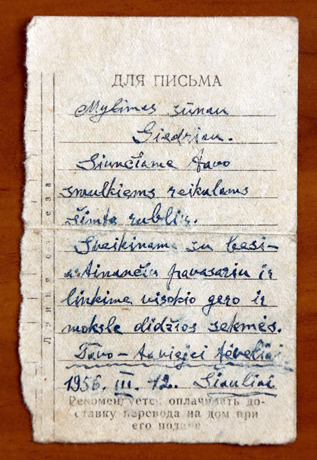 ДЛЯ ПИСЬМА
Mylimas sūnau
Giedriau.
Siunčiame tavo
smulkiems reikalams
šimtą rublių.
Sveikiname su besi-
artinančiu pavasariu ir
linkime visokio gero ir
moksle didžios sėkmės.
Tavo - tavieji tėveliai
1956. III. 12. Šiauliai
Рекомендуется оплачивать до-
ставку перевода на дом при
его подаче
Линия отреза